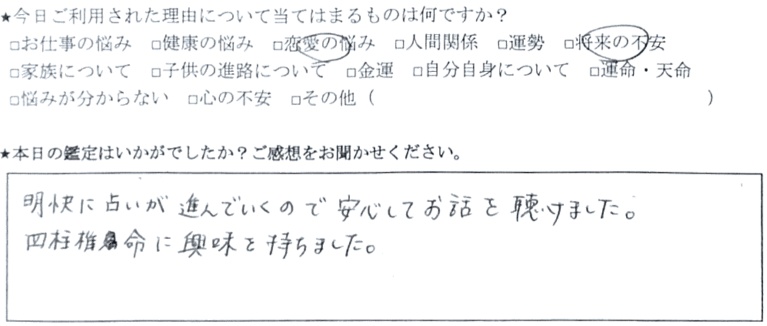 ★今日ご利用された理由について当てはまるものは何ですか？
□お仕事の悩み □健康の悩み □恋愛の悩み □人間関係 □運勢 □将来の不安
□家族について □子供の進路について □金運 □自分自身について □運命・天命
□悩みが分からない □心の不安 □その他（　　　　　　　　　　　　　　　　）
★本日の鑑定はいかがでしたか？ご感想をお聞かせください。
明快に占いが進んでいくので安心してお話を聴けました。
四柱推命に興味を持ちました。